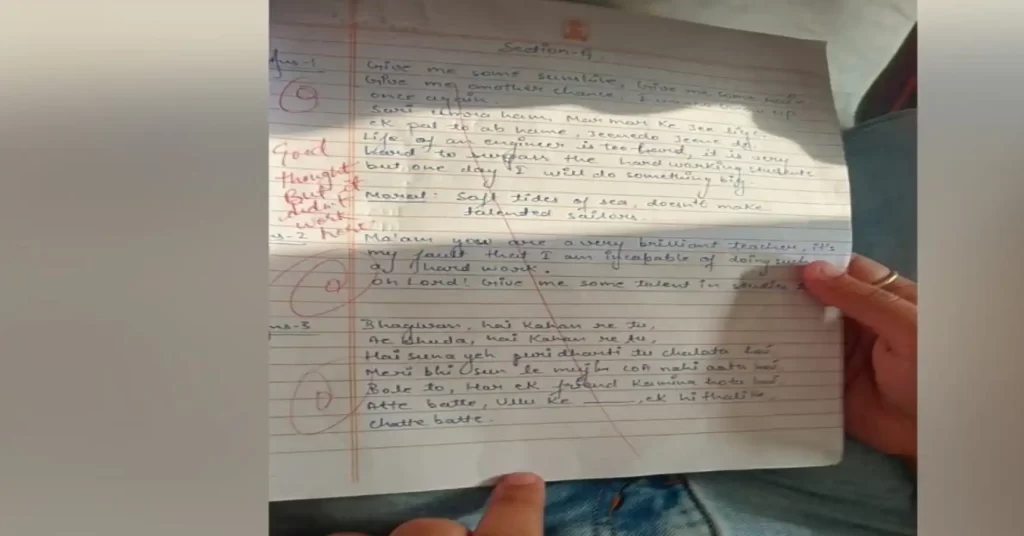 Section-A
Ans-1
Give me some sunshine, Give me some rain
Give me another chance, I wanna grow up
once again.
Sari umra ham, Mar mar ke jee liye.
ek pal to ab hame, Jeenedo Jeene do.
Life of an engineer is too hard, it is very
hard to surpass the hard working students
but one day I will do something big
Moral: Soft tides of sea, doesn't make
talented sailors.
0
Good
thought
But it
didn't
work
here!
ns-2
Ma'am you are a very brilliant teacher, it's
my fault that I am incapable of doing such
a hard work.
Oh Lord! Give me some talent in
0
ns-3
Bhagwan, hai Kahan re tu,
Ae khuda, hai Kahan re tu,
Hai suna yeh puri dharti tu chalata hai
Meri bhi sun le mujhe COA nahi aata hai
Bole to, Har ek friend kamina hota hai.
Atte batte, Ullu ke ____, ek hi thali ke
chatte batte.
0